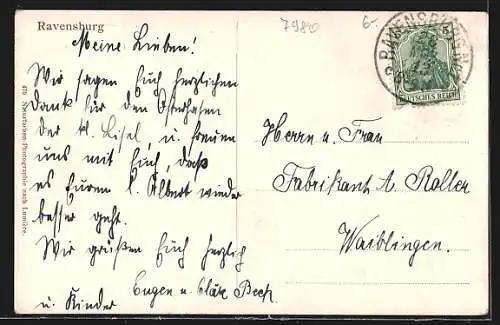 Ravensburg
7980
6.-
RAVENSBURG
DEUTSCHES REICH
Meine Lieben!
Wir sagen Euch herzlichen
Dank für den Osterhasen
der kl. Lisel, u. freuen
uns mit Euch, daß
es Eurem l. Albert wieder
besser geht.
Wir grüßen Euch herzlich
Eugen u. Cläre Beck
u. Kinder
Herrn u. Frau
Fabrikant A. Roller
Waiblingen.
Naturfarben-Photographie nach Lumière.